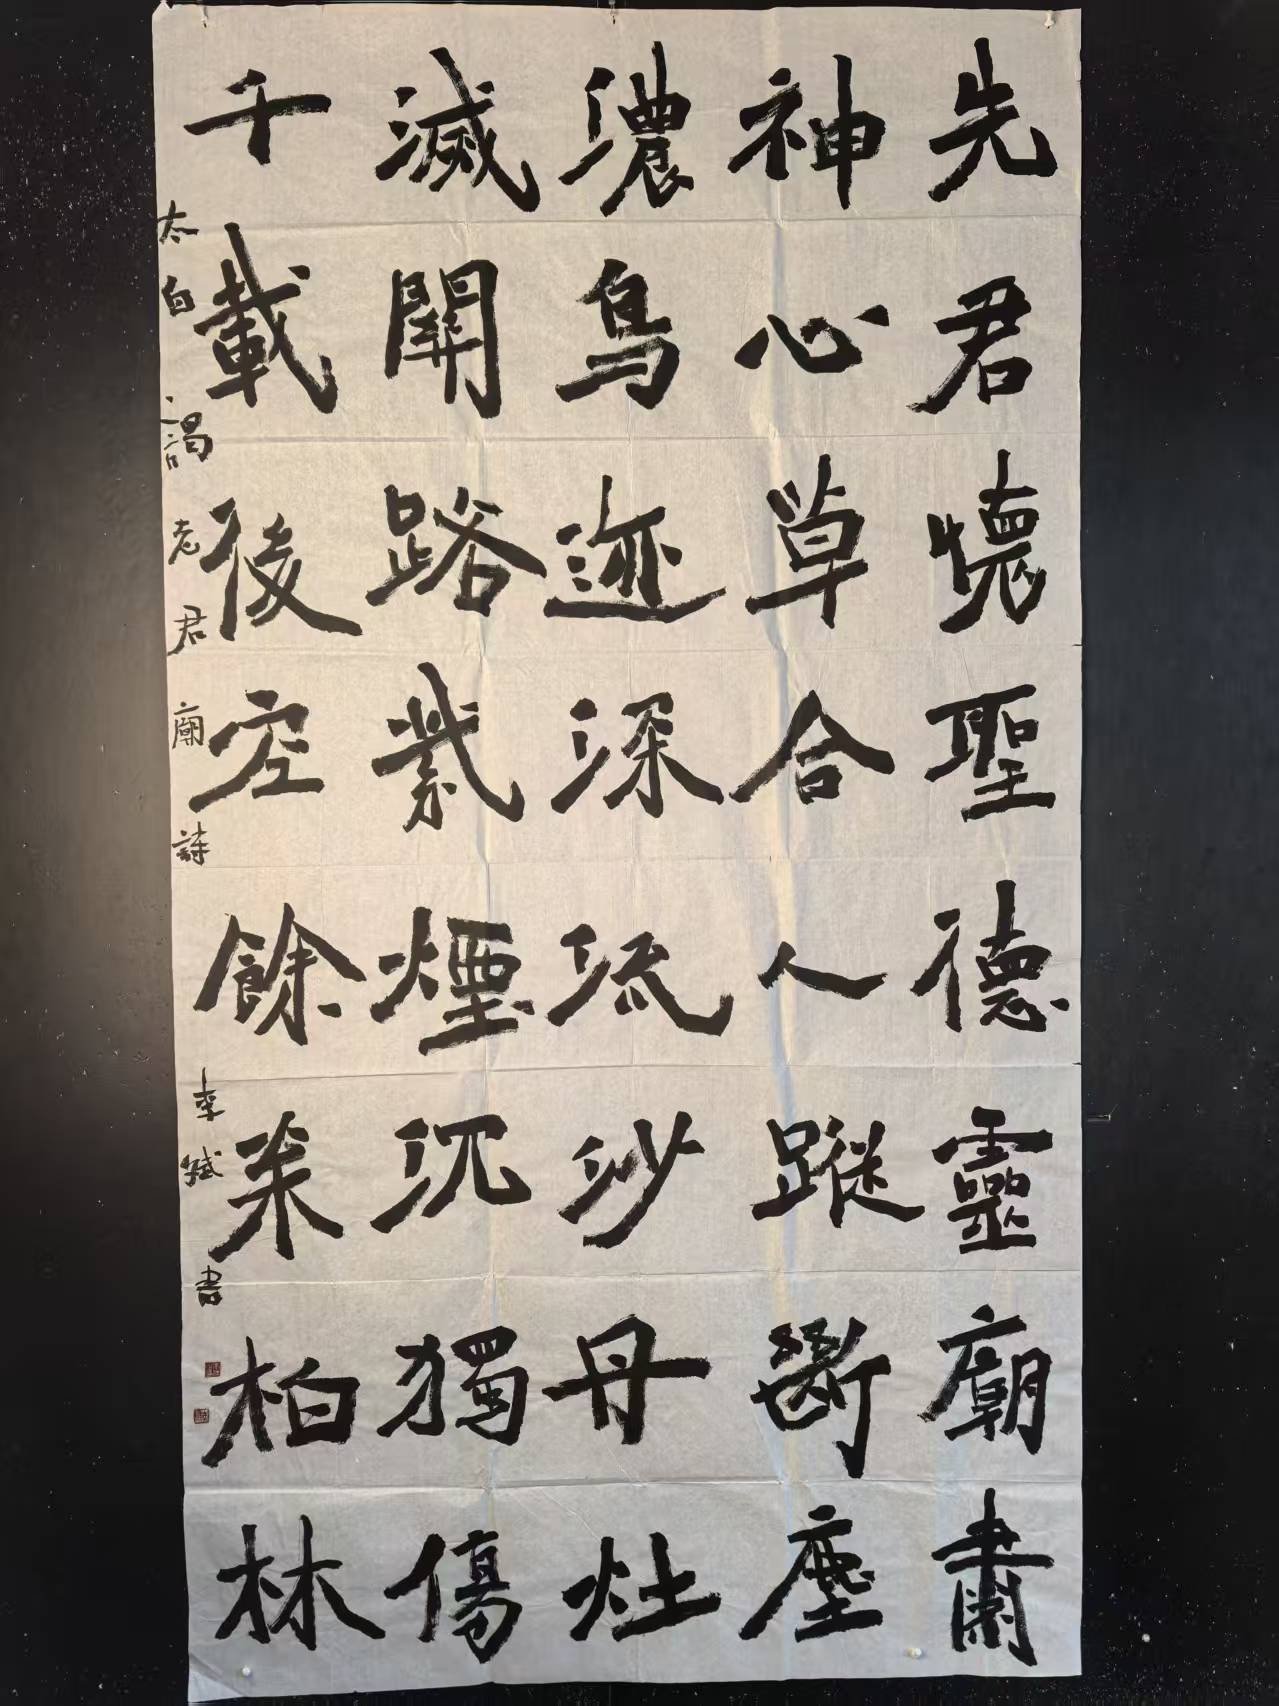 先君懷聖德靈廟肅
神心草合人蹤斷塵
濃鳥迹深流沙丹灶
滅關路紫煙沉獨傷
千載後空餘枀柏林
太白謁老君廟詩 李斌書